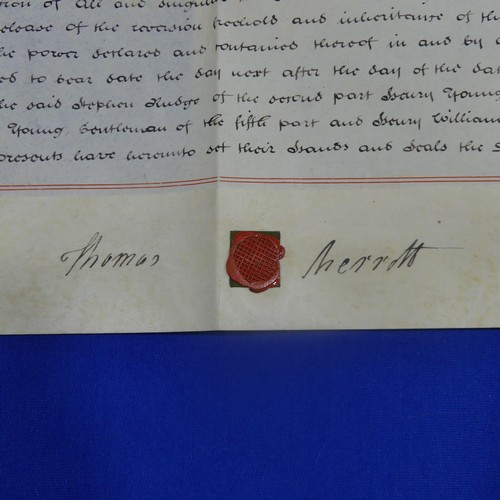 tion of all and singular
release of the reversion freehold and inheritance of the
the power declared and contained thereof in and by
ed to bear date the day next after the day of the dat
he said Stephen Rudge of the second part Henry Young
Young, Gentleman of the fifth part and Henry William
presents have hereunto set their Hands and Seals the
Thomas Merrott